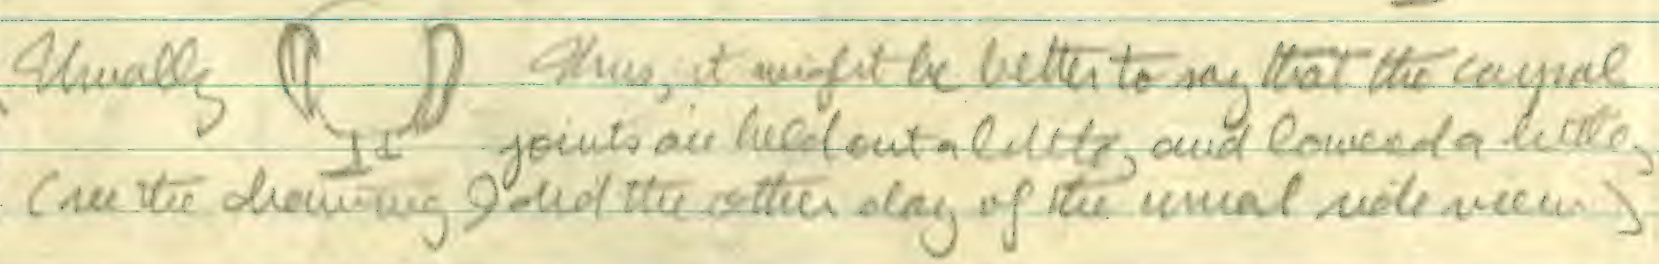 Usually Thus, it might be better to say that the carpal
joints are held out a little, and lowered a little,
(see the drawing I did the other day of the usual side view)